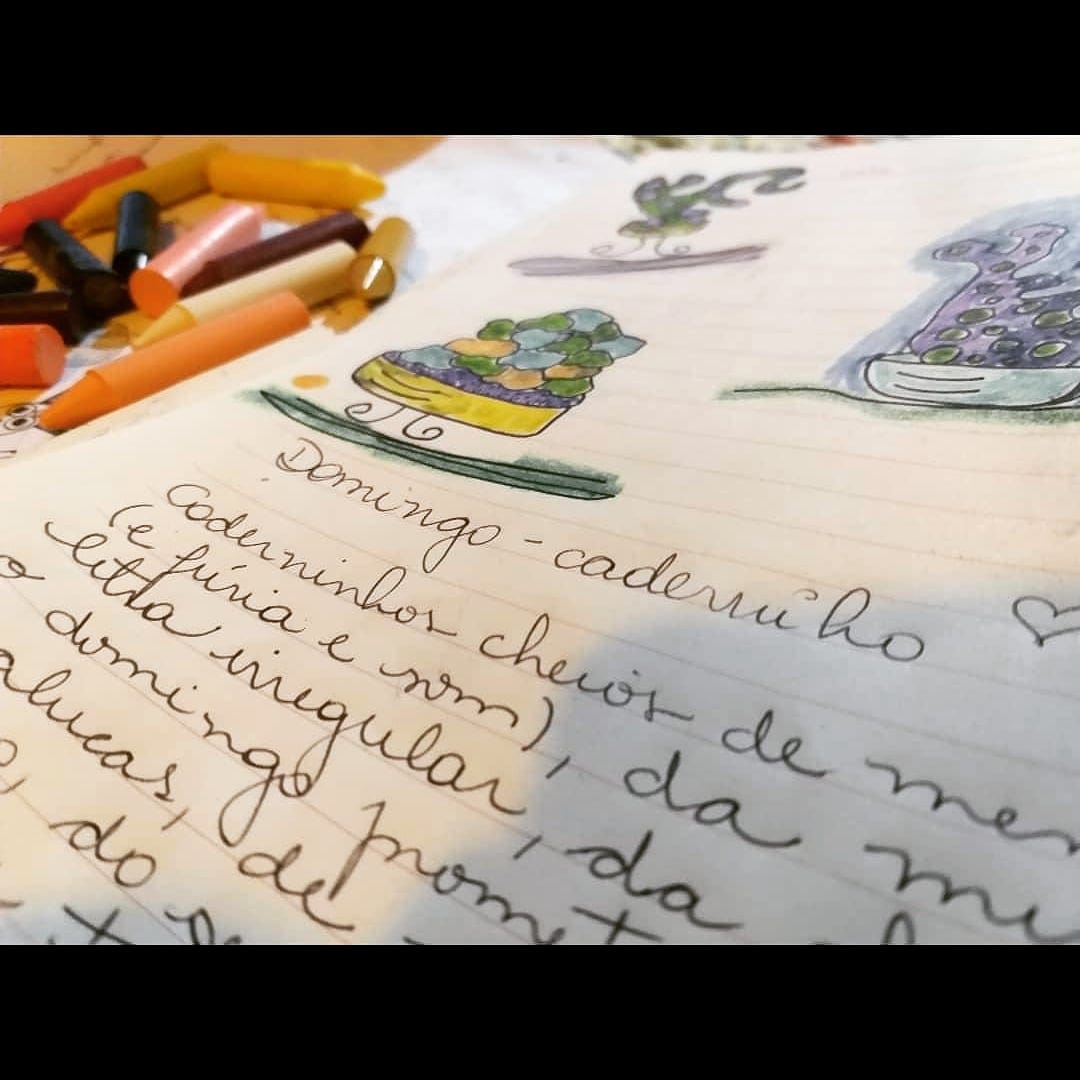 Domingo - caderninho
Caderninhos cheios de mem
(e fúria e som), da mi
letra irregular, da
o domingo promet
alucas, de
do